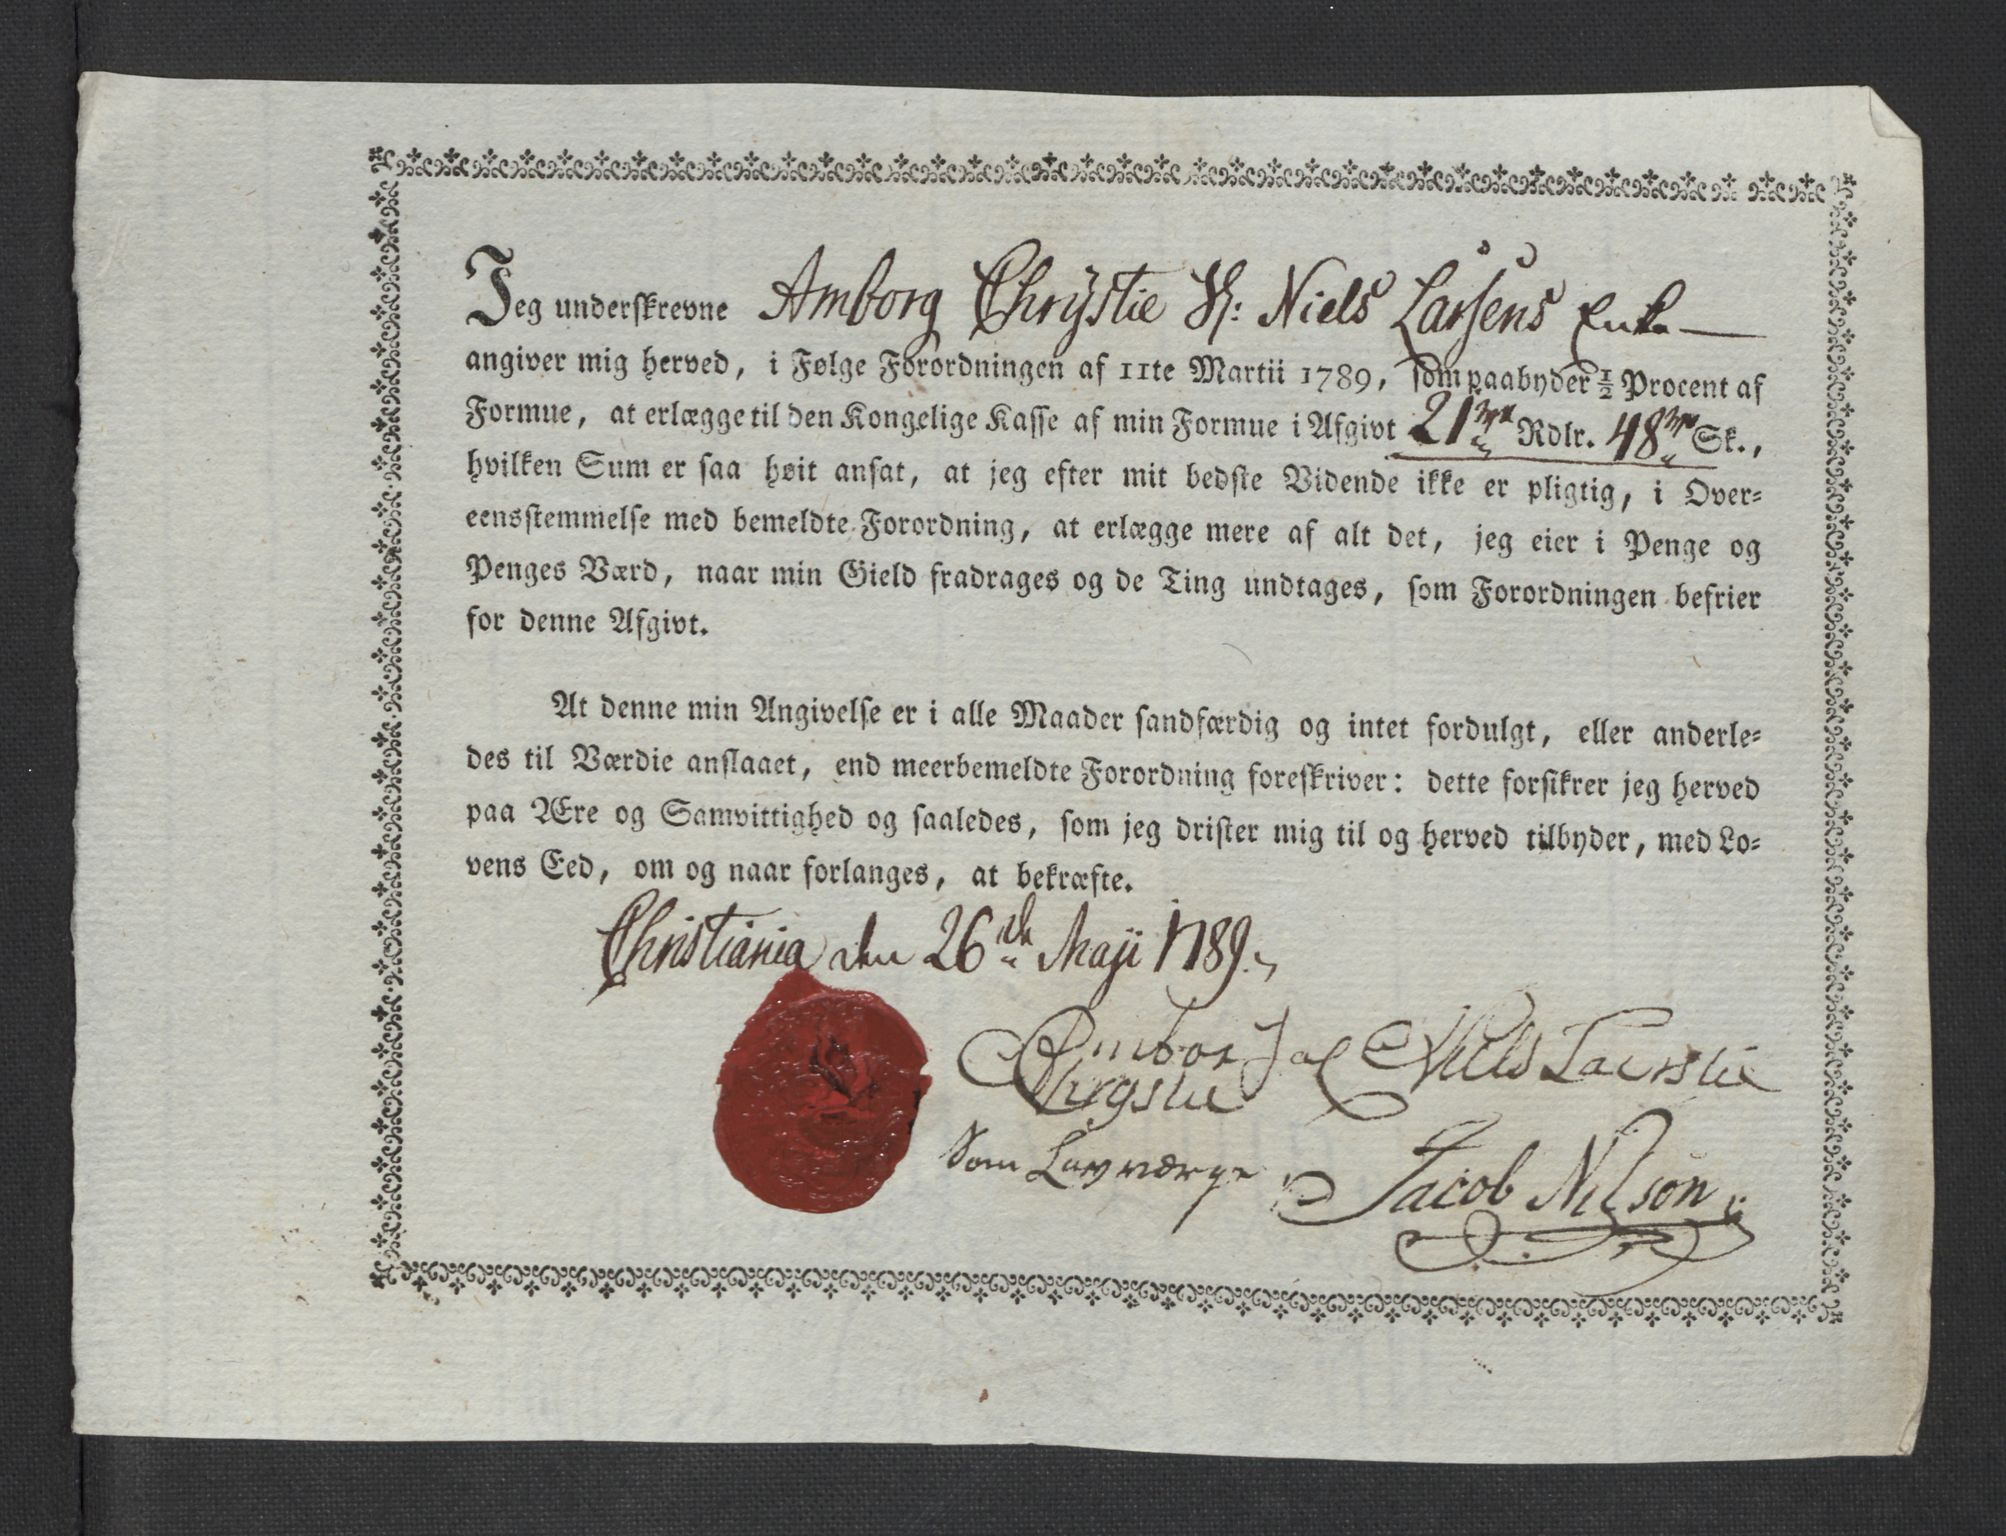 Jeg underskrevne Amborg Chrÿstie Sl: Niels Larsens Enke
angiver mig herved, i Følge Forordningen af 11te Martii 1789, som paabyder ½ Procent af
Formue, at erlægge til den Kongelige Kasse af min Formue i Afgivt 21 Rdlr. 48 Sk.,
hvilken Sum er saa høit ansat, at jeg efter mit bedste Vidende ikke er pligtig, i Over-
eensstemmelse med bemeldte Forordning, at erlægge mere af alt det, jeg eier i Penge og
Penges Værd, naar min Gield fradrages og de Ting undtages, som Forordningen befrier
for denne Afgivt.
At denne min Angivelse er i alle Maader sandfærdig og intet fordulgt, eller anderle-
des til Værdie anslaaet, end meerbemeldte Forordning foreskriver: dette forsikrer jeg herved
paa Ære og Samvittighed og saaledes, som jeg drister mig til og herved tilbyder, med Lo-
vens Eed, om og naar forlanges, at bekræfte.
Christiania den 26de Maji 1789.
Ambor Sal Niels
Chrystie
Som Lavværge Jacob Nilson